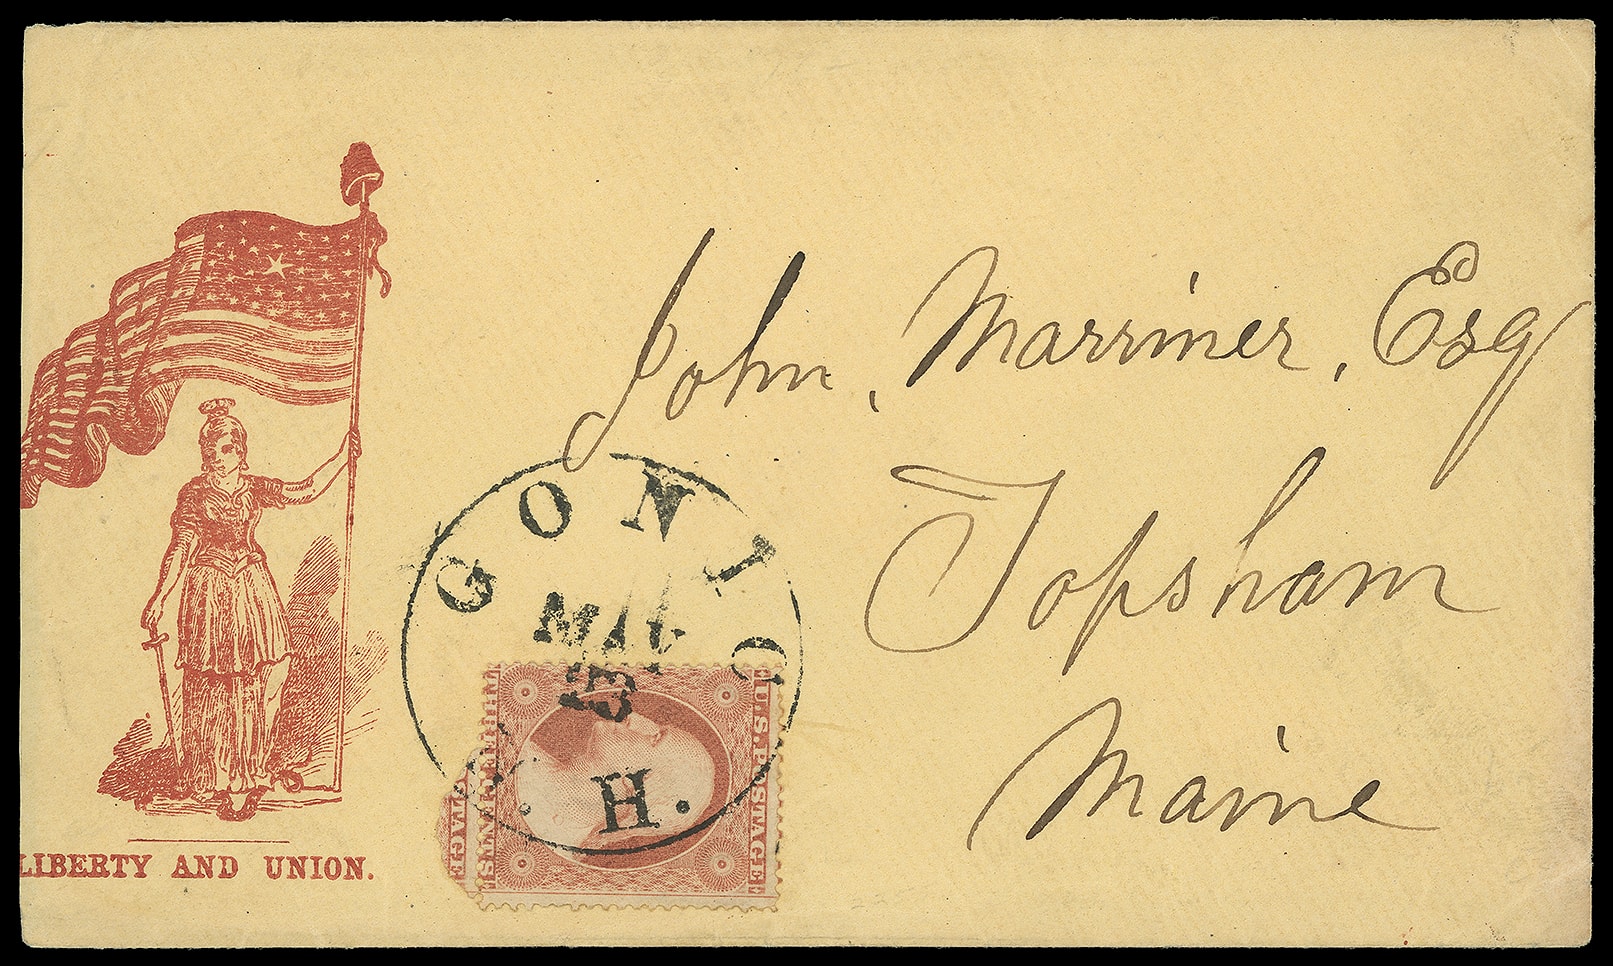 John, Marriner, Esq
Topsham
Maine
GONIC
N. H.
MAY
31
U.S. POSTAGE
THREE CENTS
STAGE
LIBERTY AND UNION.